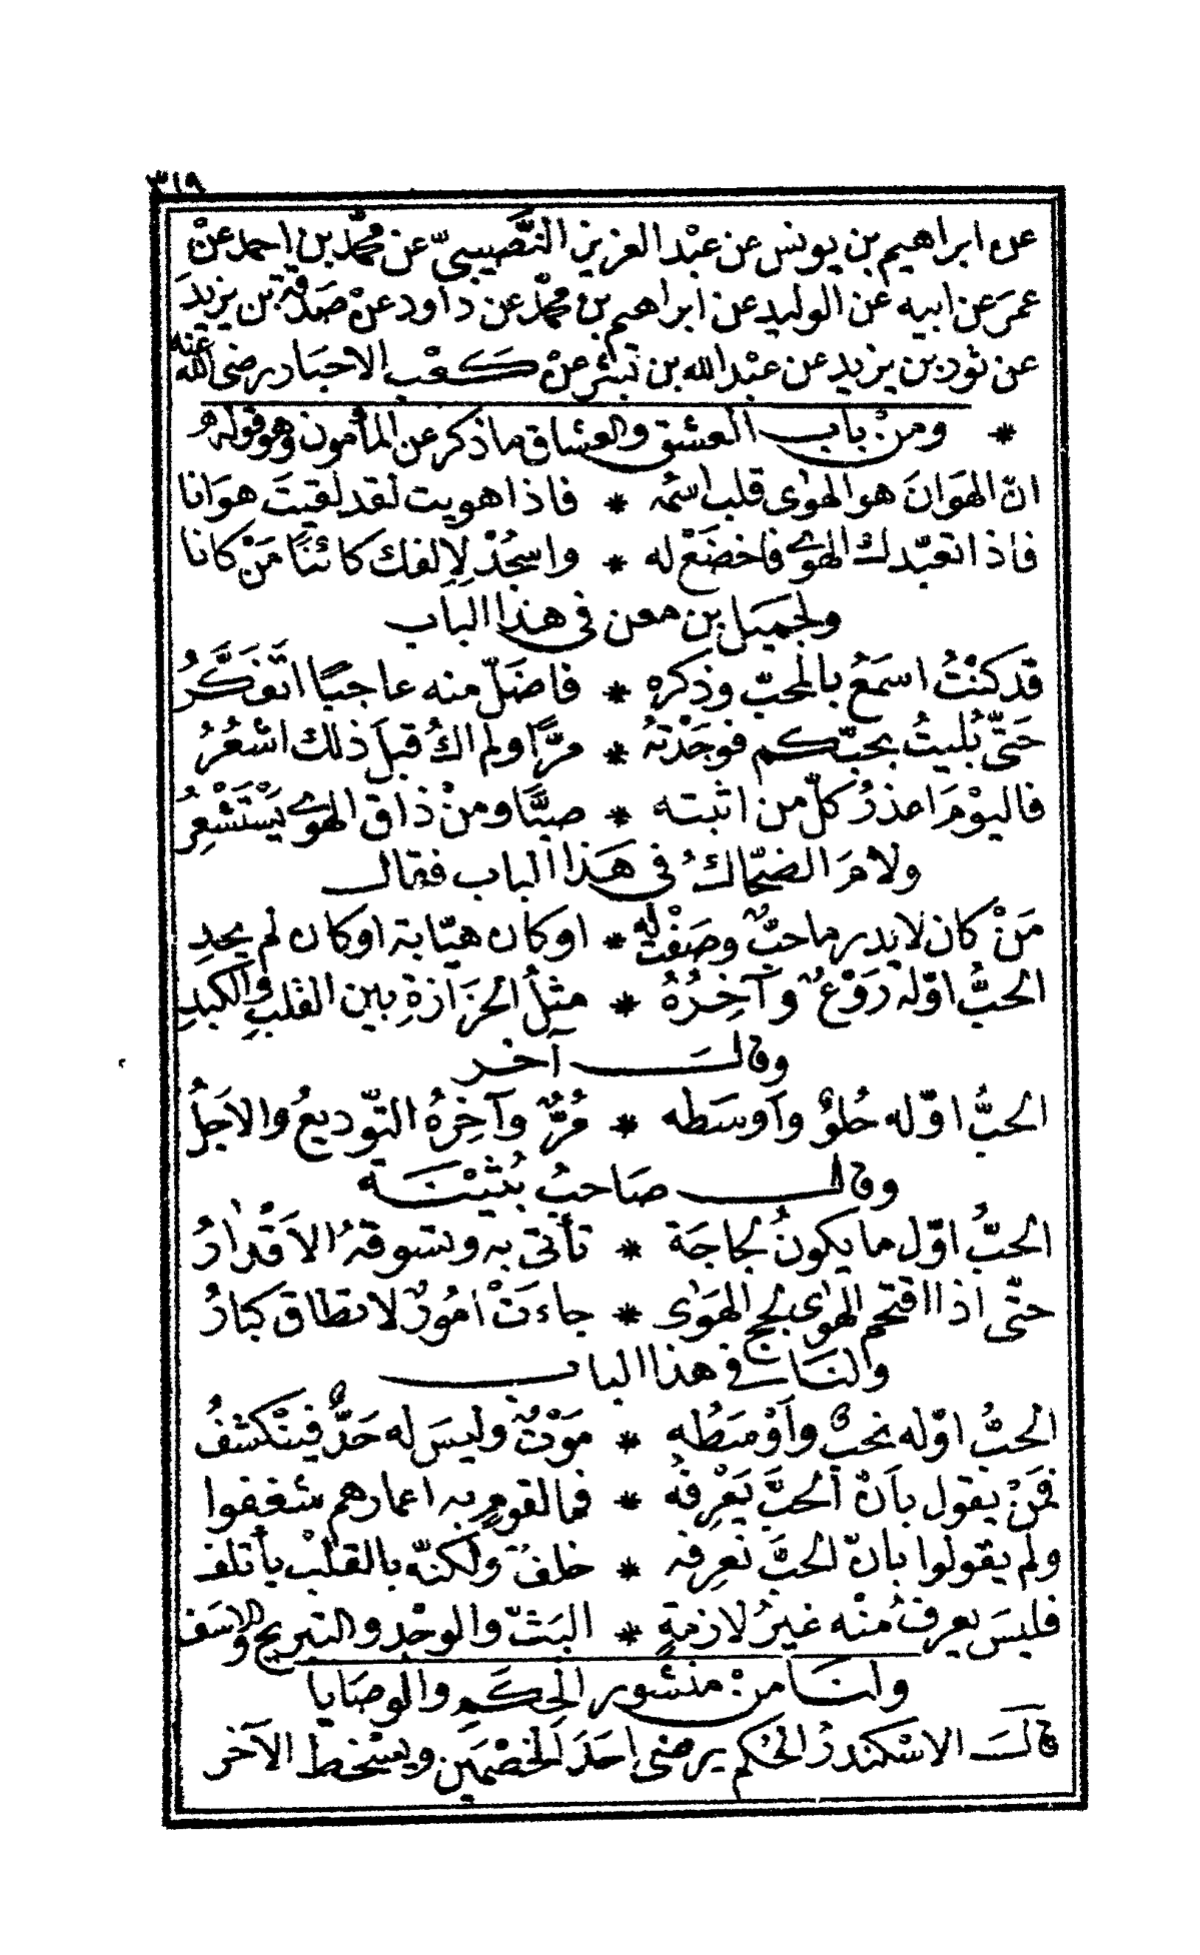 ٣١٩
عن ابراهيم بن يونس عن عبْد العزيز النَّصيبىّ عن محمّد بن احمد عنْ
عمرَ عن ابيه عن الوليد عن ابراهيم بن محمّد عن داود عنْ صَدقة بن يزيدَ
عن ثور بن يزيد عن عبْد الله بن بشر عنْ كعْب الاحبار رضى الله عنه
* ومنْ باب العشق والعشاق ما ذكر عن المأمون وهو قوله
انّ الهَوَانَ هو الهوٰى قلب اسمُه * فاذا هويت لقد لقيتَ هوَانا
فاذا تعبّدك الهوى فاخضَعْ له * واسجُدْ لِالفك كائنًا مَنْ كانا
ولجميَل بن معن فى هذا الباب
قد كنْتُ اسمَعُ بالمحبّ وذكره * فاضَلّ منه عاجبًا اتفكَّرُ
حَتّى بُليتُ بحبّكم فوجَدْتهُ * مرًّا ولم اكُ قبلَ ذلك اشعُرُ
فاليوْمَ اعذرُ كلّ من اثبته * صبًّا ومنْ ذاق الهوى يَسْتَشْعِرُ
ولامَ الضحّاكُ فى هَذا الباب فقال
مَنْ كان لا يدر ما حبٌّ وصَفْت له * او كان هيّابة او كان لم يجدِ
الحبُّ اوّله رَوْعٌ وآخِرُهُ * مثلُ الحزَازةِ بين القلبِ والكبدِ
وقالَ آخر
الحبُّ اوّله حُلوٌ وآوسَطه * مُرٌّ وآخِرهُ التّوديعُ والاَجلُ
وقال صَاحبُ بُثيْنَة
الحبُّ اوّل ما يكونُ لجاجَة * تأتى به وتسوقهُ الاَقْدارُ
حتّى اذا اقتحم الهوٰى لجج الهوَى * جاءتْ اُمُورٌ لا تطاق كبارُ
ولنا فى هذا الباب
الحبُّ اوّله نحبٌ وآوْسَطُه * مَوْتٌ وليسَ له حَدٌّ فينْكشفُ
فمَنْ يقول بآنّ الحبَّ يَعْرِفهُ * فما لقومٍ به اعمارهم شغفوا
ولم يقولوا بانّ الحبَّ نعرِفه * خلفٌ ولكنّه بالقلْب يأتلف
فليسَ يعرفُ منْه غيرُ لازمةٍ * البَثّ والوجْد والتبريح والاسَف
ولنا منْ منثور الحِكَمِ والوصَايا
قالَ الاسْكندرُ الحُكم يرضى احَدَ الخصْمَين ويسْخط الآخر